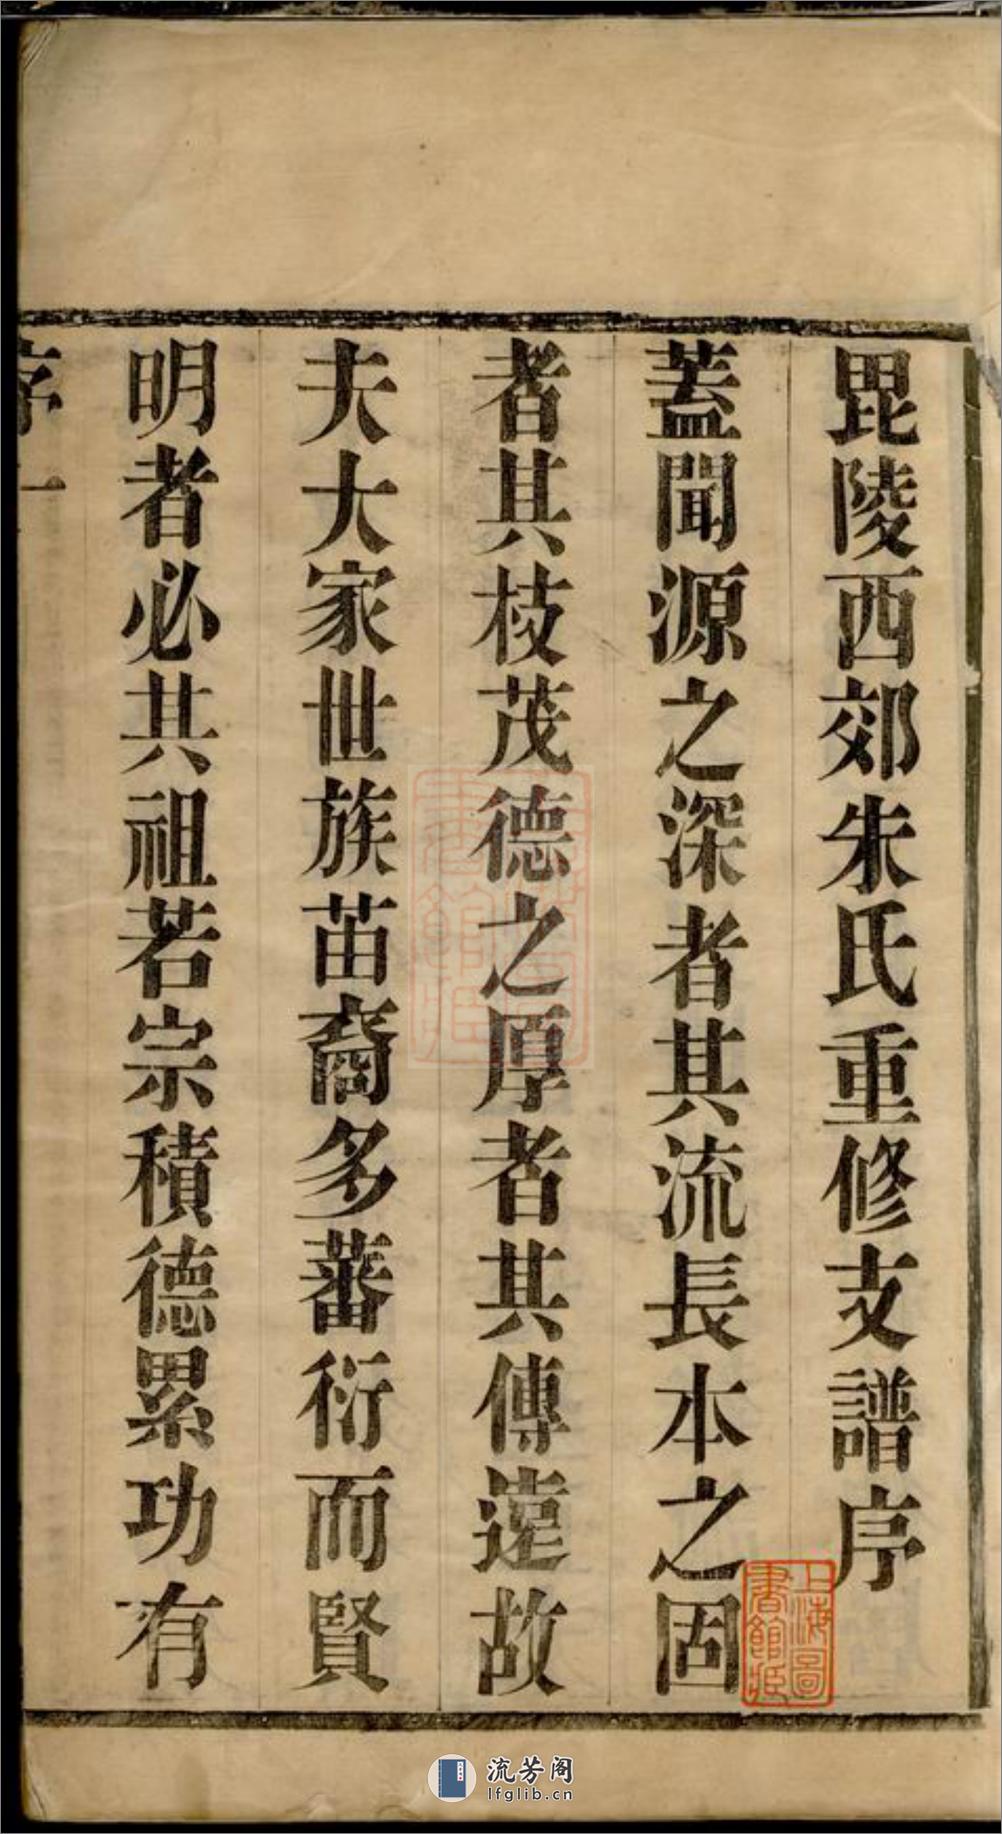 毘陵西郊朱氏重修支譜序
蓋聞源之深者其流長本之固
者其枝茂德之厚者其傳遠故
夫大家世族苗裔多蕃衍而賢
明者必其祖若宗積德累功有
序一
上海圖
書館藏
流芳阁
lfglib.cn